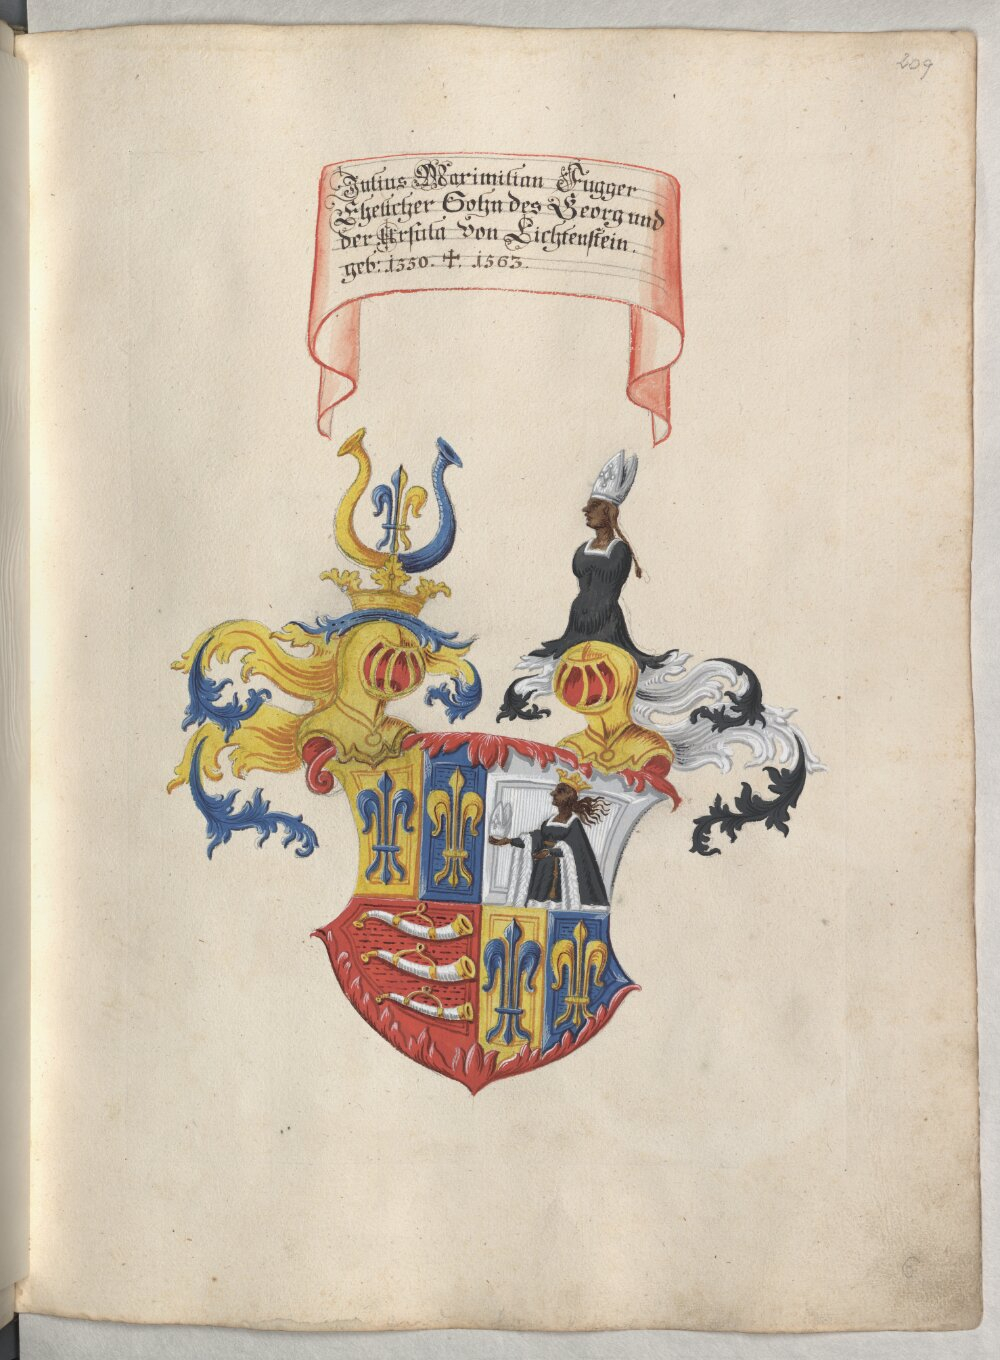 209
Julius Maximilian Fugger
Ehelicher Sohn des Georg und
der Ursula von Lichtenstein.
geb: 1550. ✝. 1563.